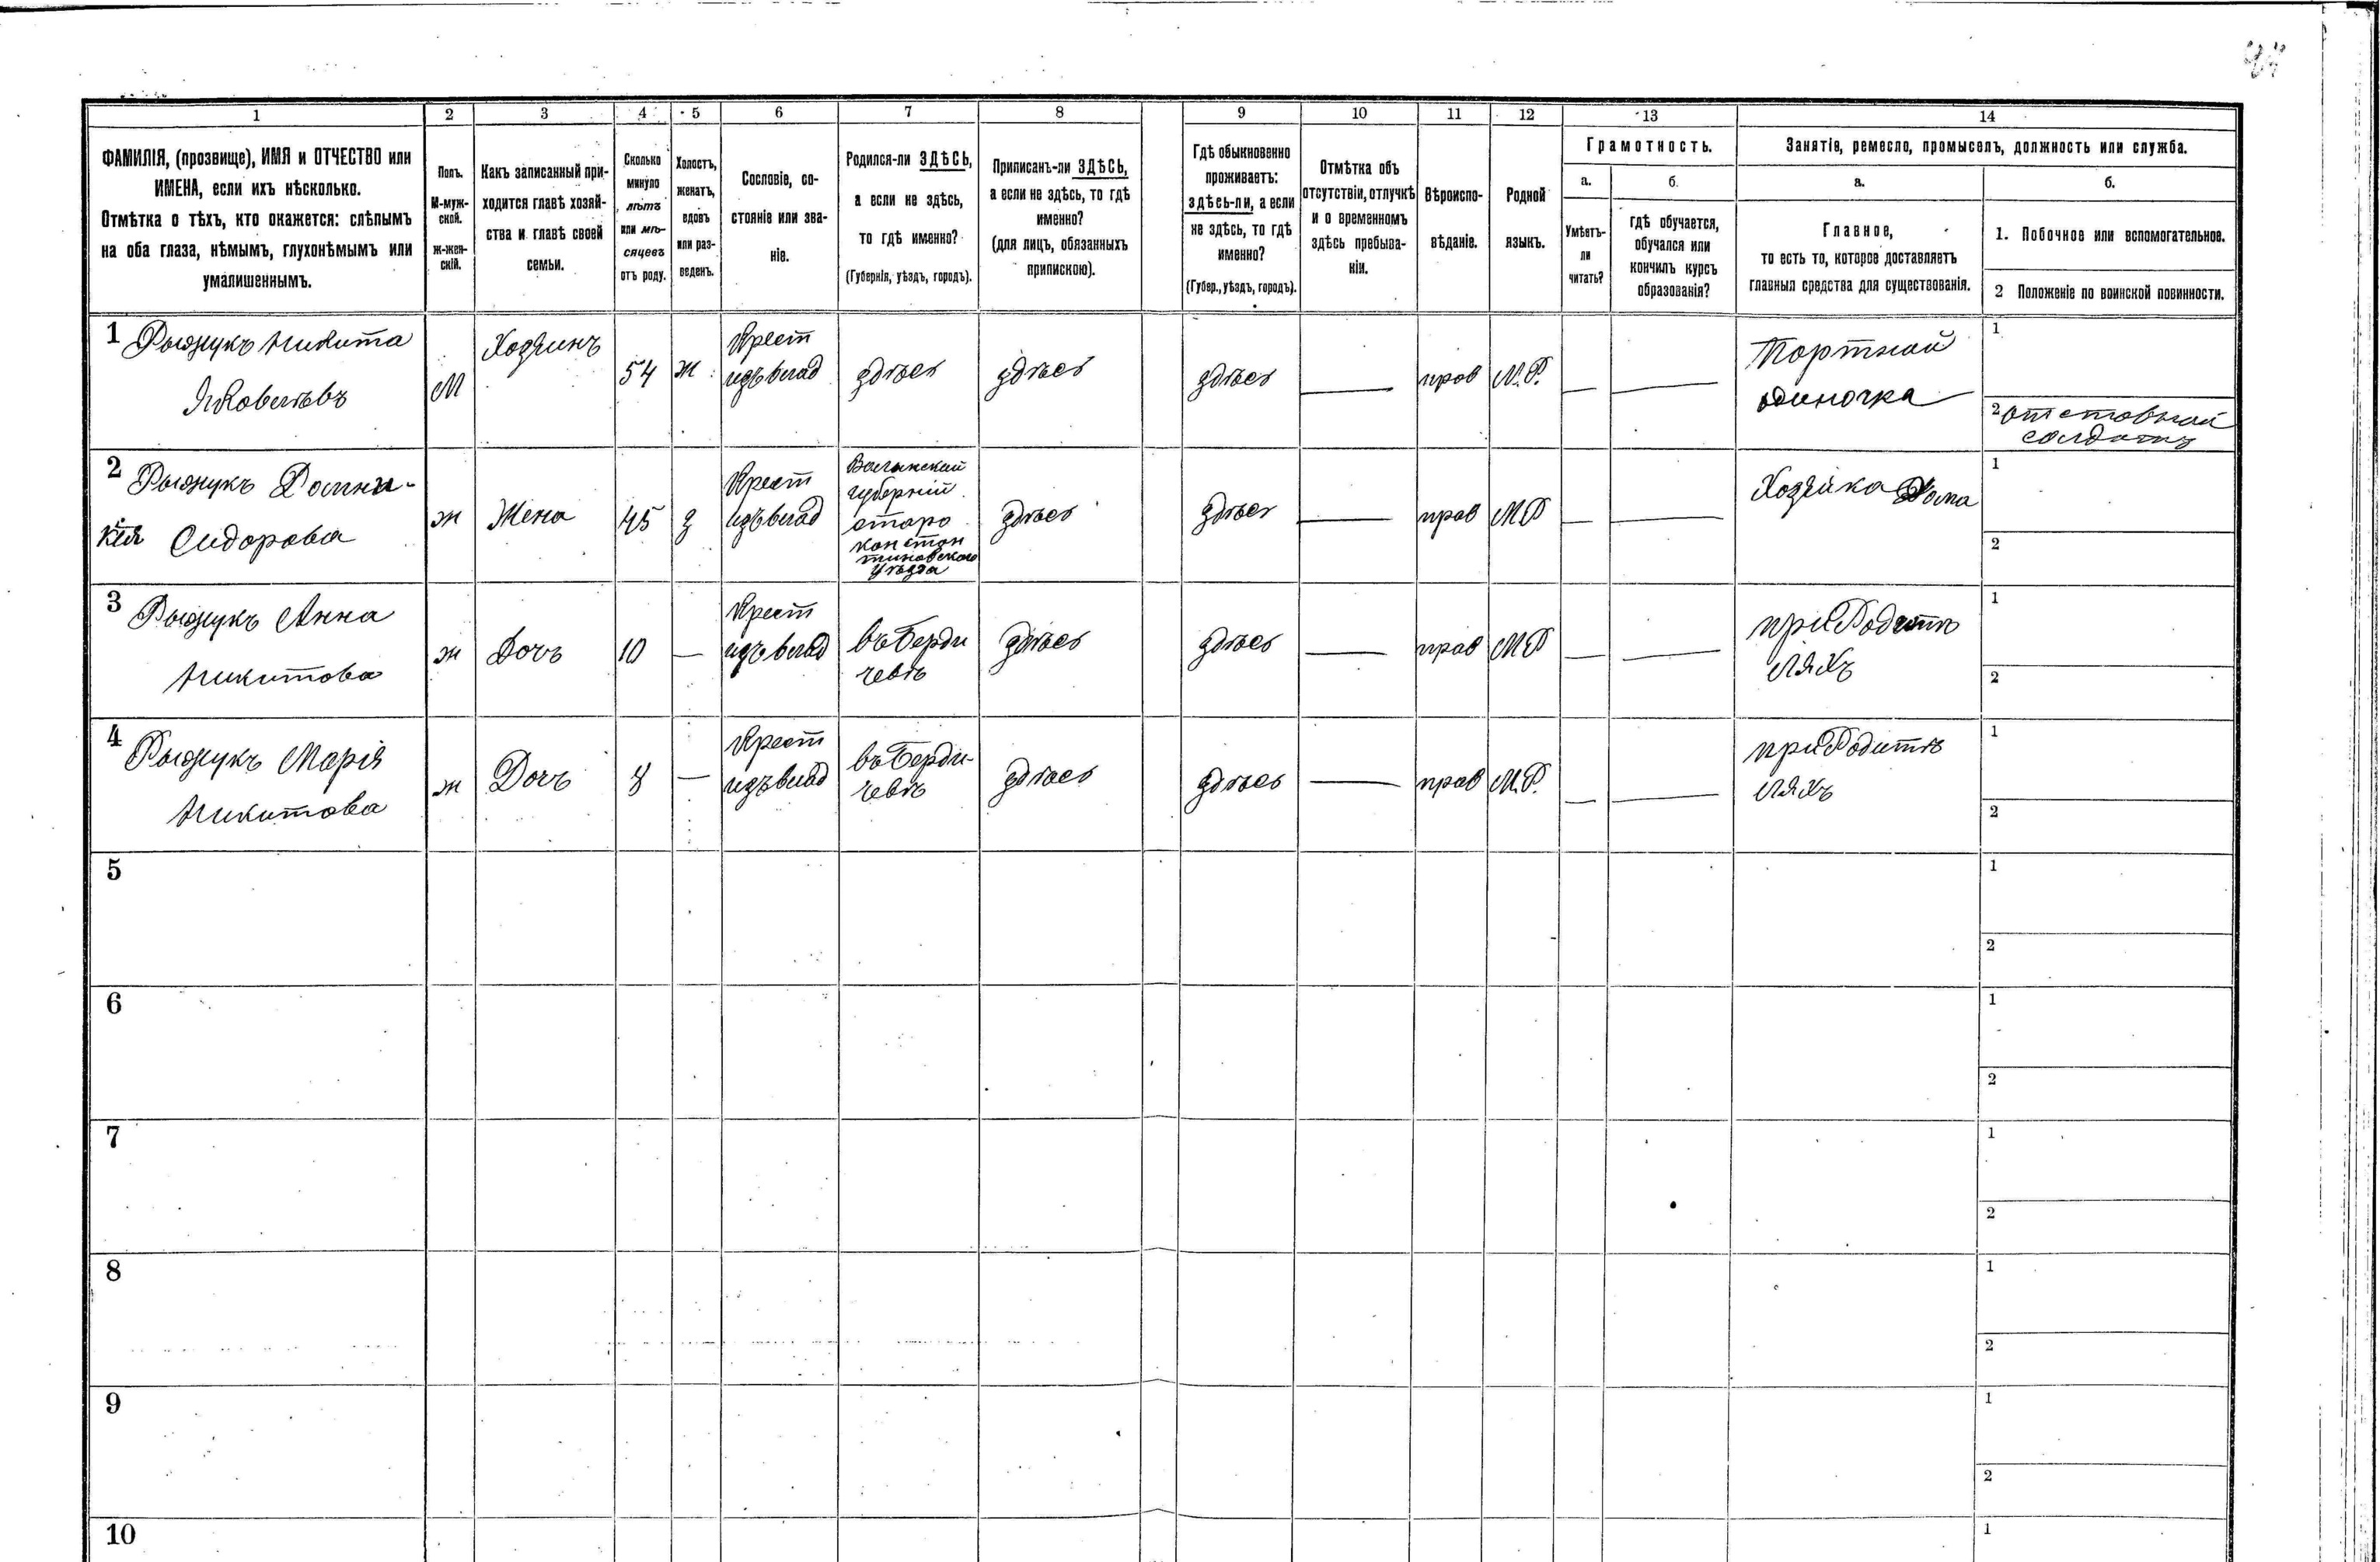 1 2 3 4 5 6 7 8 9 10 11 12 13 14
ФАМИЛІЯ, (прозвище), ИМЯ и ОТЧЕСТВО или
ИМЕНА, если ихъ нѣсколько.
Отмѣтка о тѣхъ, кто окажется: слѣпымъ
на оба глаза, нѣмымъ, глухонѣмымъ или
умалишеннымъ.
Полъ.
М-муж-
ской.
ж-жен-
скій.
Какъ записанный при-
ходится главѣ хозяй-
ства и главѣ своей
семьи.
Сколько
минуло
лѣтъ
или мѣ-
сяцевъ
отъ роду.
Холостъ,
женатъ,
вдовъ
или раз-
веденъ.
Сословіе, со-
стояніе или зва-
ніе.
Родился-ли ЗДѢСЬ,
а если не здѣсь,
то гдѣ именно?
(Губернія, уѣздъ, городъ).
Приписанъ-ли ЗДѢСЬ,
а если не здѣсь, то гдѣ
именно?
(для лицъ, обязанныхъ
припискою).
Гдѣ обыкновенно
проживаетъ:
здѣсь-ли, а если
не здѣсь, то гдѣ
именно?
(Губер., уѣздъ, городъ).
Отмѣтка объ
отсутствіи, отлучкѣ
и о временномъ
здѣсь пребыва-
ніи.
Вѣроиспо-
вѣданіе.
Родной
языкъ.
Грамотность.
а.
Умѣетъ-
ли
читать?
б.
гдѣ обучается,
обучался или
кончилъ курсъ
образованія?
Занятіе, ремесло, промыселъ, должность или служба.
а.
Главное,
то есть то, которое доставляетъ
главныя средства для существованія.
б.
1. Побочное или вспомогательное.
2 Положеніе по воинской повинности.
1 Рыжукъ Никита
Яковлевъ
М
Хозяинъ
54
ж
Крест
изъ влад
здѣсь
здѣсь
здѣсь
прав
М.Р.
Портной
одиночка
1
2 отставной
солдатъ
2 Рыжукъ Домни-
кія Сидорова
ж
Жена
45
з
Крест
изъ влад
Волынской
губерній
старо
констан
тиновского
уѣзда
здѣсь
здѣсь
прав
МР
Хозяйка Дома
1
2
3 Рыжукъ Анна
Никитова
ж
Дочь
10
Крест
изъ влад
въ Берди
чевѣ
здѣсь
здѣсь
прав
МР
при Родите
ляхъ
1
2
4 Рыжукъ Марія
Никитова
ж
Дочь
Крест
изъ влад
въ Берди-
чевѣ
здѣсь
здѣсь
прав
М.Р.
при Родите
ляхъ
1
2
5
1
2
6
1
2
7
1
2
8
1
2
9
1
2
10
1